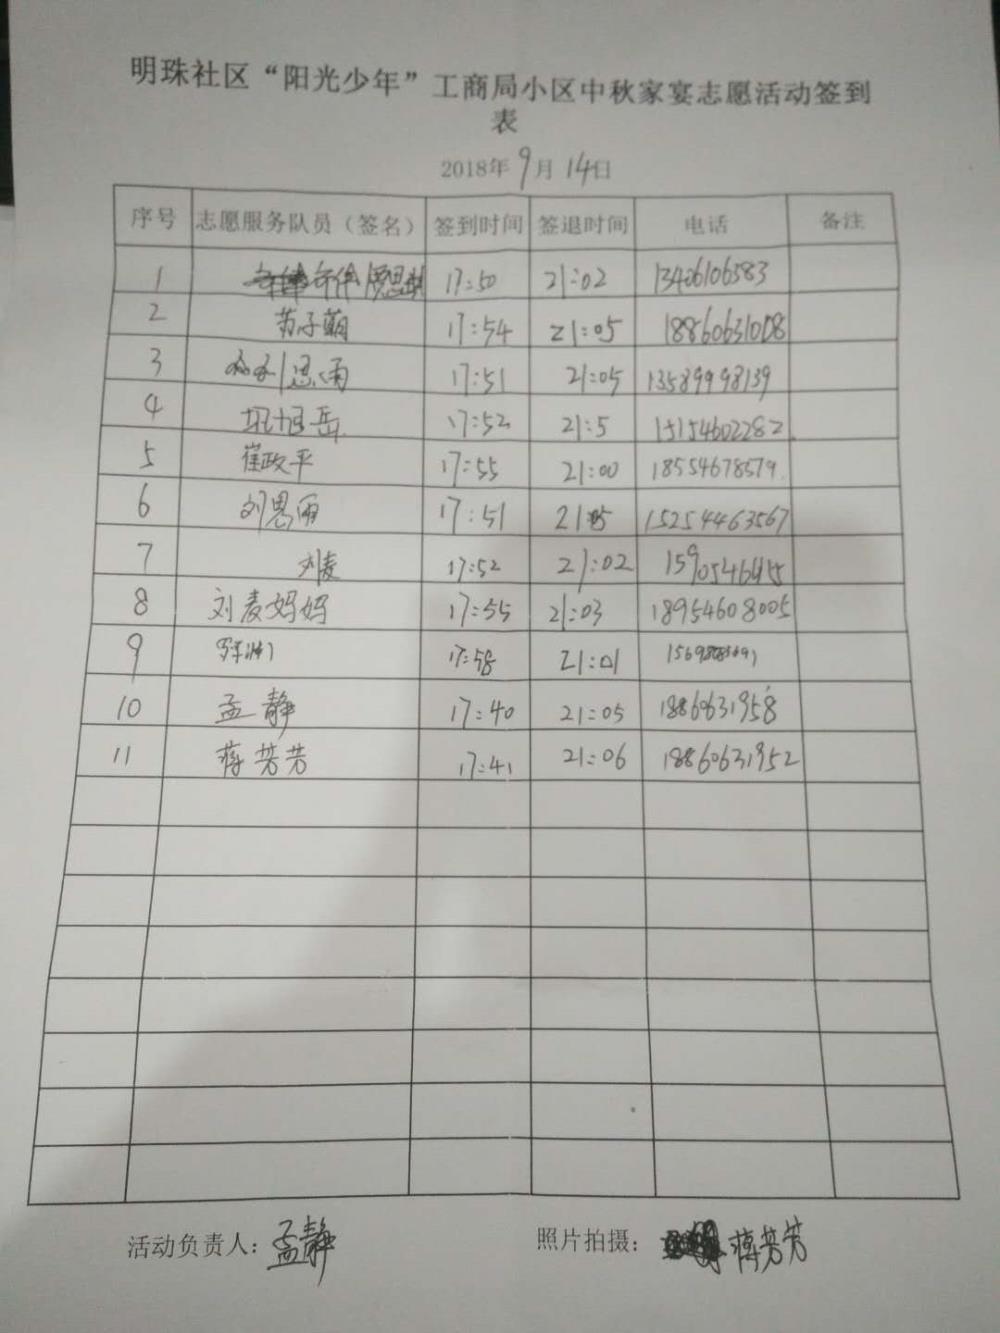 明珠社区“阳光少年”工商局小区中秋家宴志愿活动签到
表
2018年9月14日
序号 志愿服务队员（签名） 签到时间 签退时间 电话 备注
1 17:50 21:02 13406106583
2 苏子萌 17:54 21:05 18860631008
3 17:51 21:05 13589998139
4 17:52 21:5 15154602282
5 崔政平 17:55 21:00 18554678579
6 刘思雨 17:51 21:05 15254463567
7 刘麦 17:52 21:02
8 刘麦妈妈 17:55 21:03 18954608005
9 17:58 21:01
10 孟静 17:40 21:05 18860631958
11 蒋芳芳 17:41 21:06 18860631952
活动负责人：孟静 照片拍摄：蒋芳芳